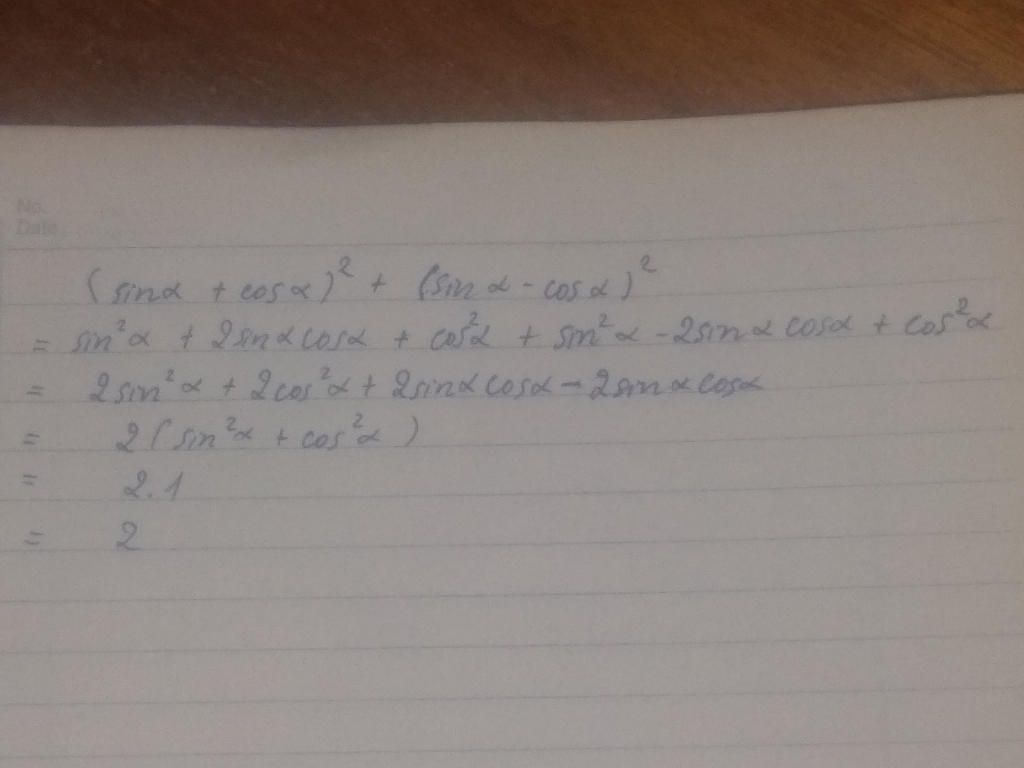 No.
Date
(sinα + cosα)² + (sinα - cosα)²
= sin²α + 2sinαcosα + cos²α + sin²α - 2sinαcosα + cos²α
= 2sin²α + 2cos²α + 2sinαcosα - 2sinαcosα
= 2(sin²α + cos²α)
= 2.1
= 2